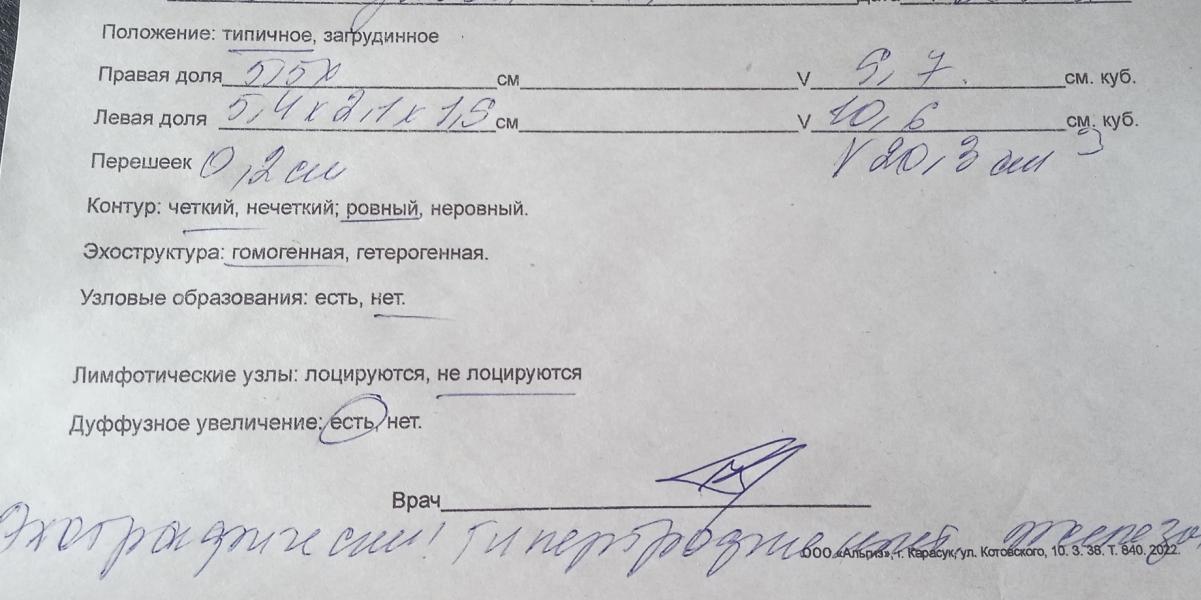 Положение: типичное, загрудинное
Правая доля 5,5х см V 9,7 см. куб.
Левая доля 5,4 х 2,1 х 1,9 см V 10,6 см. куб.
Перешеек 0,2 см V 20,3 см 3
Контур: четкий, нечеткий; ровный, неровный.
Эхоструктура: гомогенная, гетерогенная.
Узловые образования: есть, нет.
Лимфотические узлы: лоцируются, не лоцируются
Дуффузное увеличение: есть, нет.
Врач
Эхографически!
ООО «Альгиз», г. Карасук, ул. Котовского, 10. З. 38. Т. 840. 2022.